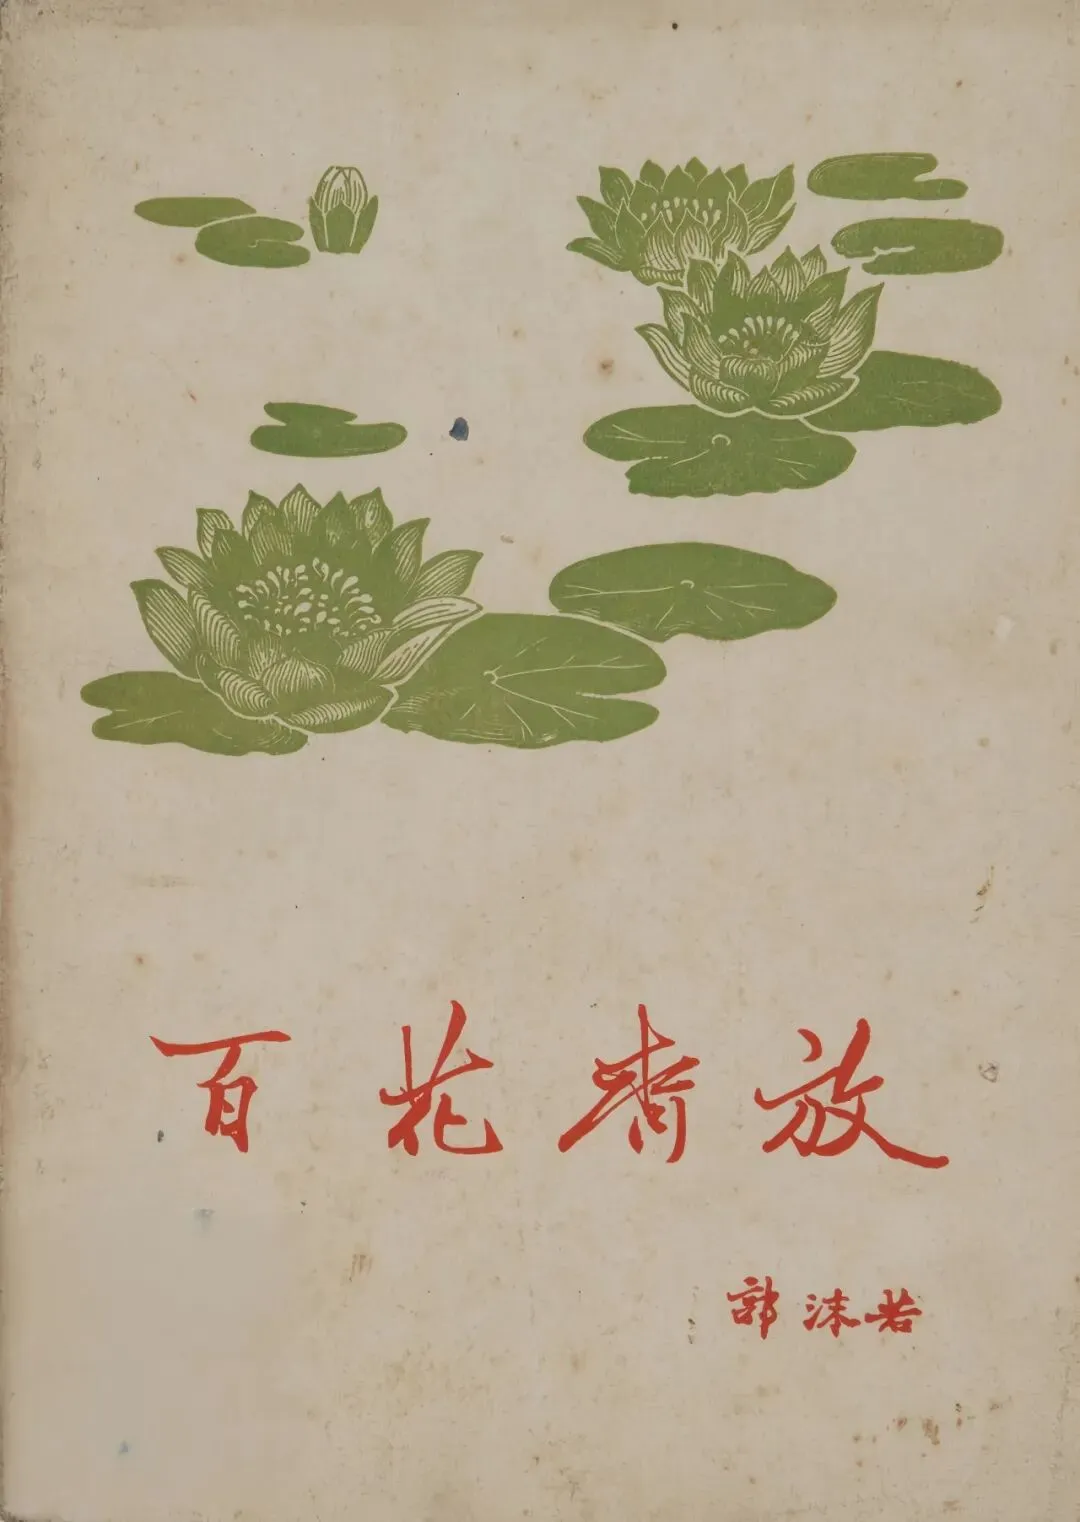 百花齐放
郭沫若